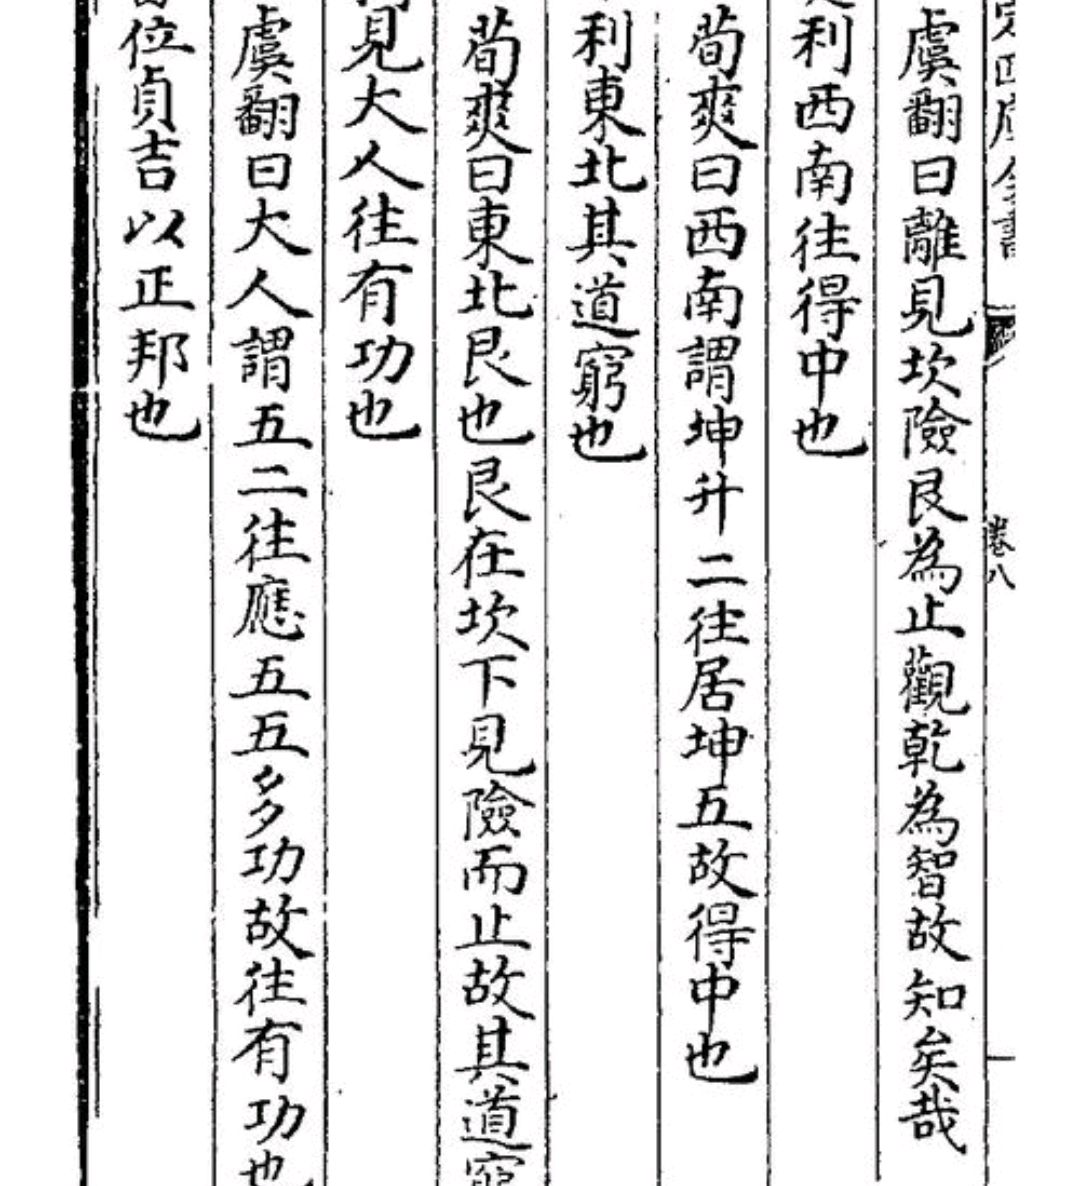 四庫全書
卷八
虞翻曰離見坎險艮為止觀乾為智故知矣哉
利西南往得中也
荀爽曰西南謂坤升二往居坤五故得中也
利東北其道窮也
荀爽曰東北艮也艮在坎下見險而止故其道窮
見大人往有功也
虞翻曰大人謂五二往應五五多功故往有功也
位貞吉以正邦也